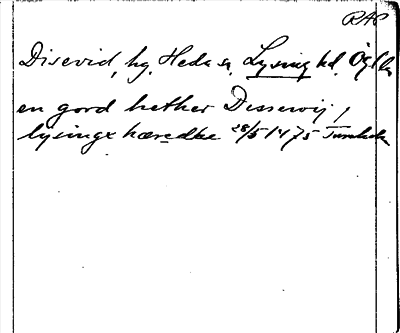 RAP
Disevid, hg, Heda sn, Lysing hd, Ög l.
en gord hether Dissewij,
lysinge hæredhe 28/5 1475